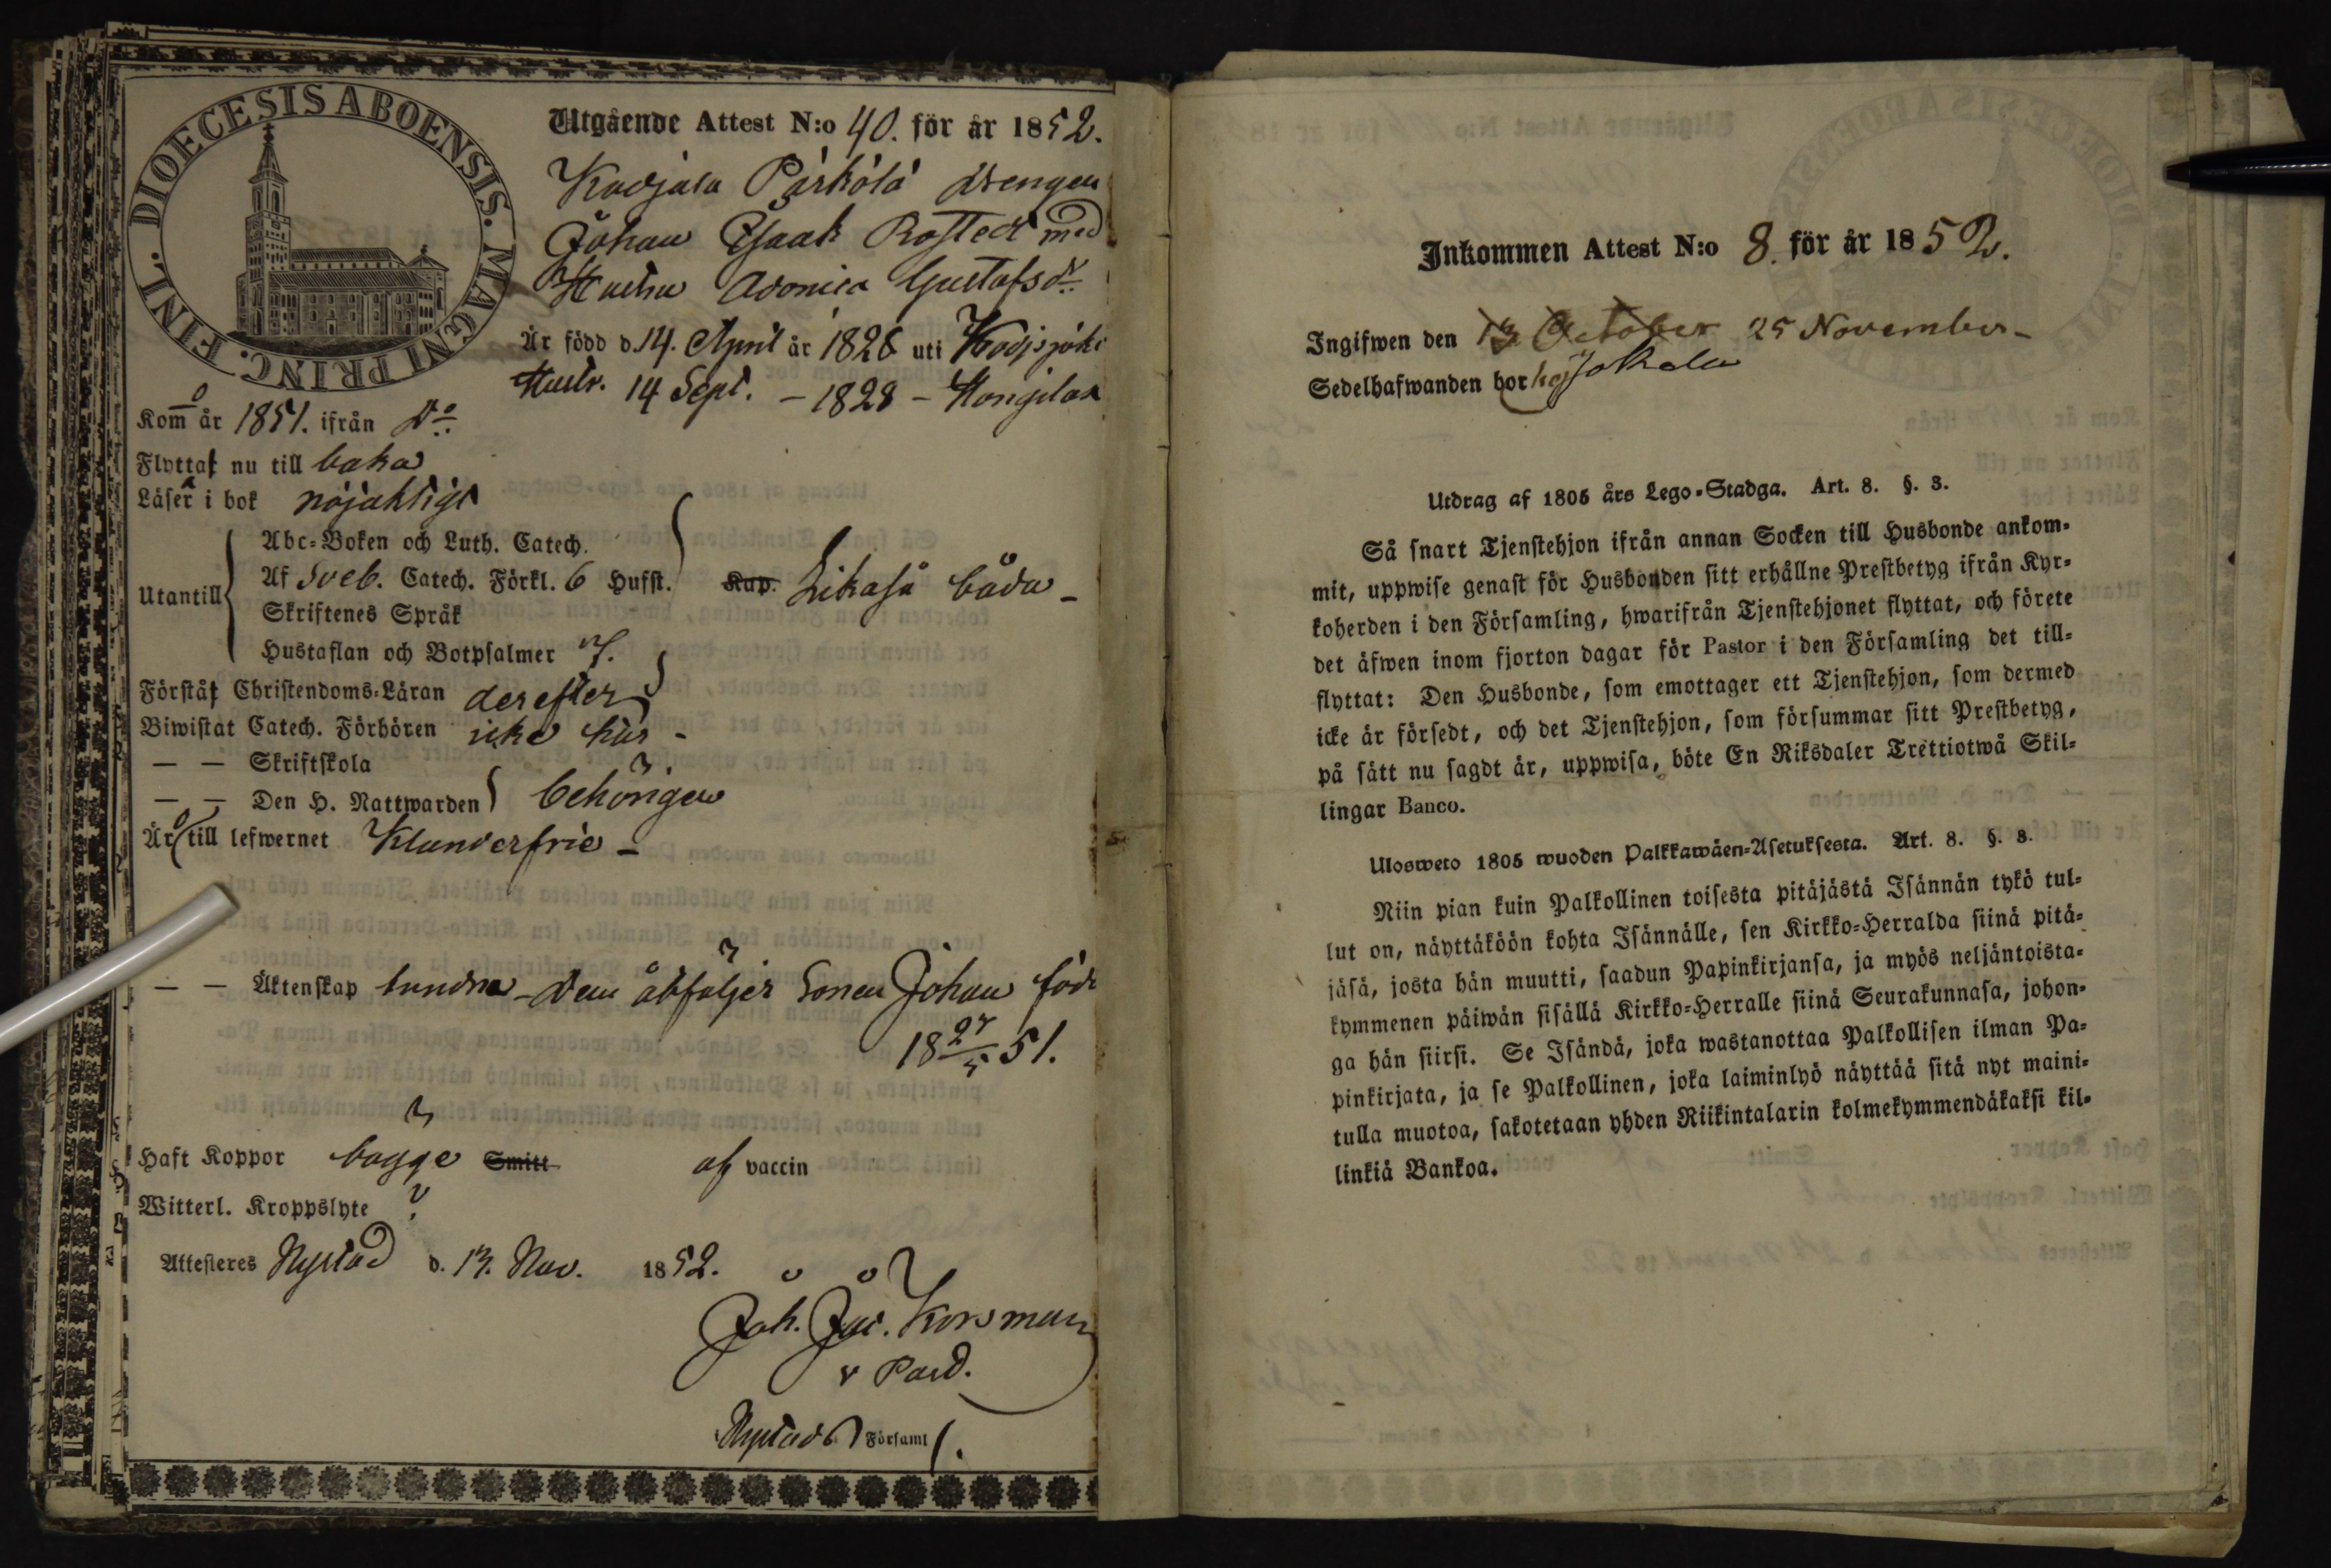 DIOECESIS ABOENSIS. MAGNI PRINC. FINL.
Utgående Attest N:o 40. för år 1852.
Pärkölä drengen
Johan Isaak Rostedt med
Hustru Adonica Gustafsdr
Är född d. 14. April år 1826 uti Hodjsjoki
Hustr. 14 Sept. – 1828 – Hongilax
Kom̄ år 1851. ifrån Do
Flyttat nu till baka
Läser i bok nöjaktigt
Utantill
Abc-Boken och Luth. Catech.
Af Sveb. Catech. Förkl. 6 Hufst. Kap. Likaså båda –
Skriftenes Språk
Hustaflan och Botpsalmer
Förstår Christendoms-Läran derefter
Biwistat Catech. Förhören icke här –
— — Skriftskola
— — Den H. Nattwarden behörigen
Är till lefwernet Klanderfrie –
— — Äktenskap bundna – Dem åtföljer Sonen Johan född
18 27/5 51.
Haft Koppor bägge Smitt af vaccin
Witterl. Kroppslyte ?
Attesteres Nystad d. 13. Nov. 1852.
Joh. Jac. Korsman
v Past.
Nystads Församl.
Inkommen Attest N:o 8. för år 1852.
Ingifwen den 13 October 25 November –
Sedelhafwanden bor hos Jokela
Utdrag af 1805 års Lego-Stadga. Art. 8. §. 3.
Så snart Tjenstehjon ifrån annan Socken till Husbonde ankom-
mit, uppwise genast för Husbonden sitt erhållne Prestbetyg ifrån Kyr-
koherden i den Församling, hwarifrån Tjenstehjonet flyttat, och förete
det äfwen inom fjorton dagar för Pastor i den Församling det till-
flyttat: Den Husbonde, som emottager ett Tjenstehjon, som dermed
icke är försedt, och det Tjenstehjon, som försummar sitt Prestbetyg,
på sätt nu sagdt är, uppwisa, böte En Riksdaler Trettiotwå Skil-
lingar Banco.
Ulosweto 1805 wuoden Palkkawäen-Asetuksesta. Art. 8. §. 3.
Niin pian kuin Palkollinen toisesta pitäjästä Isännän tykö tul-
lut on, näyttäköön kohta Isännälle, sen Kirkko-Herralda siinä pitä-
jäsä, josta hän muutti, saadun Papinkirjansa, ja myös neljäntoista-
kymmenen päiwän sisällä Kirkko-Herralle siinä Seurakunnasa, johon-
ga hän siirsi. Se Isändä, joka wastanottaa Palkollisen ilman Pa-
pinkirjata, ja se Palkollinen, joka laiminlyö näyttää sitä nyt maini-
tulla muotoa, sakotetaan yhden Riikintalarin kolmekymmendäkaksi kil-
linkiä Bankoa.